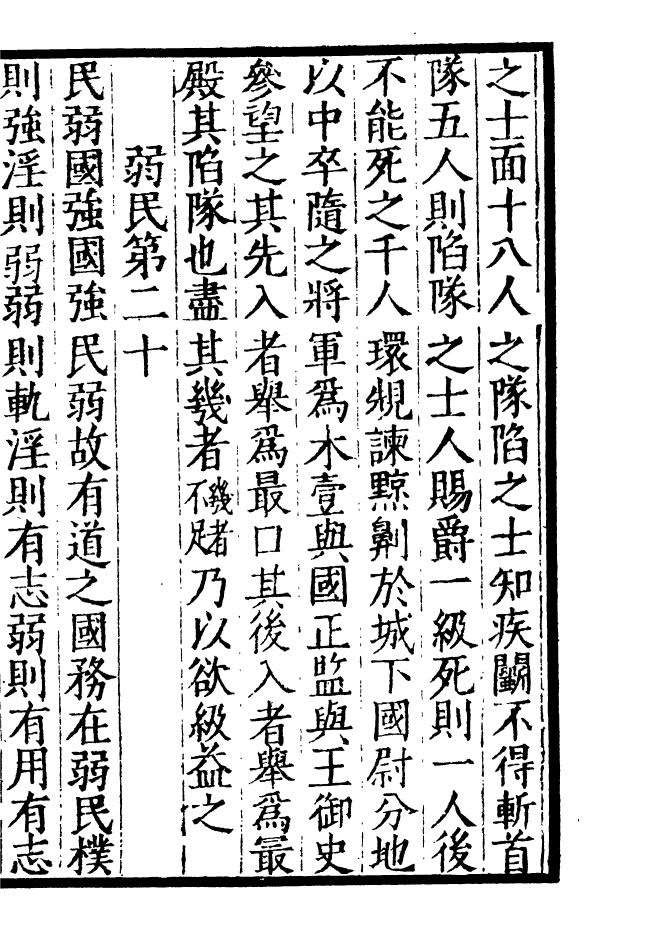 之士面十八人之隊陷之士知疾鬭不得斬首
隊五人則陷隊之士人賜爵一級死則一人後
不能死之千人環䂓諫黥劓於城下國尉分地
以中卒隨之將軍爲木壹與國正監與王御史
參望之其先入者舉爲最口其後入者舉爲最
殿其陷隊也盡其幾者不足幾者乃以欲級益之
弱民第二十
民弱國強國強民弱故有道之國務在弱民樸
則強淫則弱弱則軌淫則有志弱則有用有志